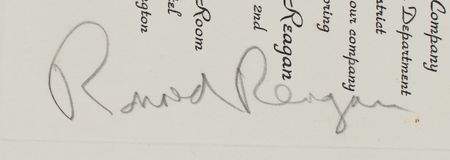 Company
Department
strict
our company
oring
Reagan
2nd
Room
ngton
Ronald Reagan